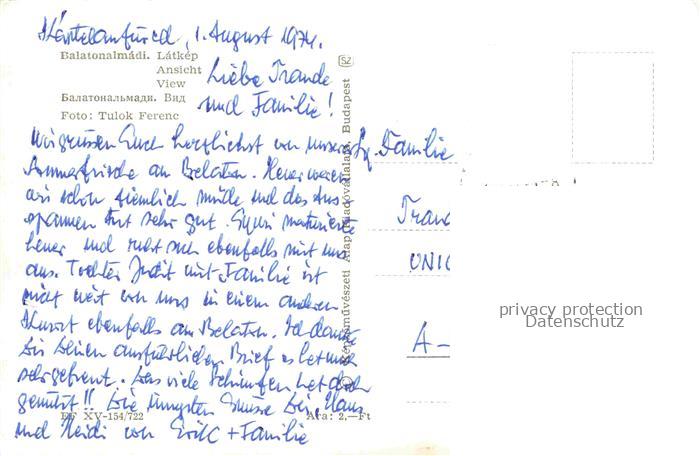 1. August 1974.
Balatonalmádi. Látkép
Ansicht
View
Балатональмади. Вид
Foto: Tulok Ferenc
Liebe Traude
und Familie!
Wir grüssen Euch herzlichst von unserer
Sommerfrische am Belaton. Heuer waren
wir schon ziemlich müde und das Aus-
spannen tut sehr gut. maturierte
heuer und ruht sich ebenfalls mit uns
aus. Tochter Judit mit Familie ist
nicht weit von uns in einem anderen
Kurort ebenfalls am Belaton. Ich danke
Dir Deinen ausführlichen Brief es hat mich
sehr gefreut. Das viele Schimpfen hat doch
genützt!! Die innigsten Grüsse Dir, Hans
und Heidi von + Familie
BF XV-154/722
Ára: 2,—Ft
Képzőművészeti Alap Kiadóvállalata, Budapest
SZ
Familie
Trau
UNI
A-
privacy protection
Datenschutz